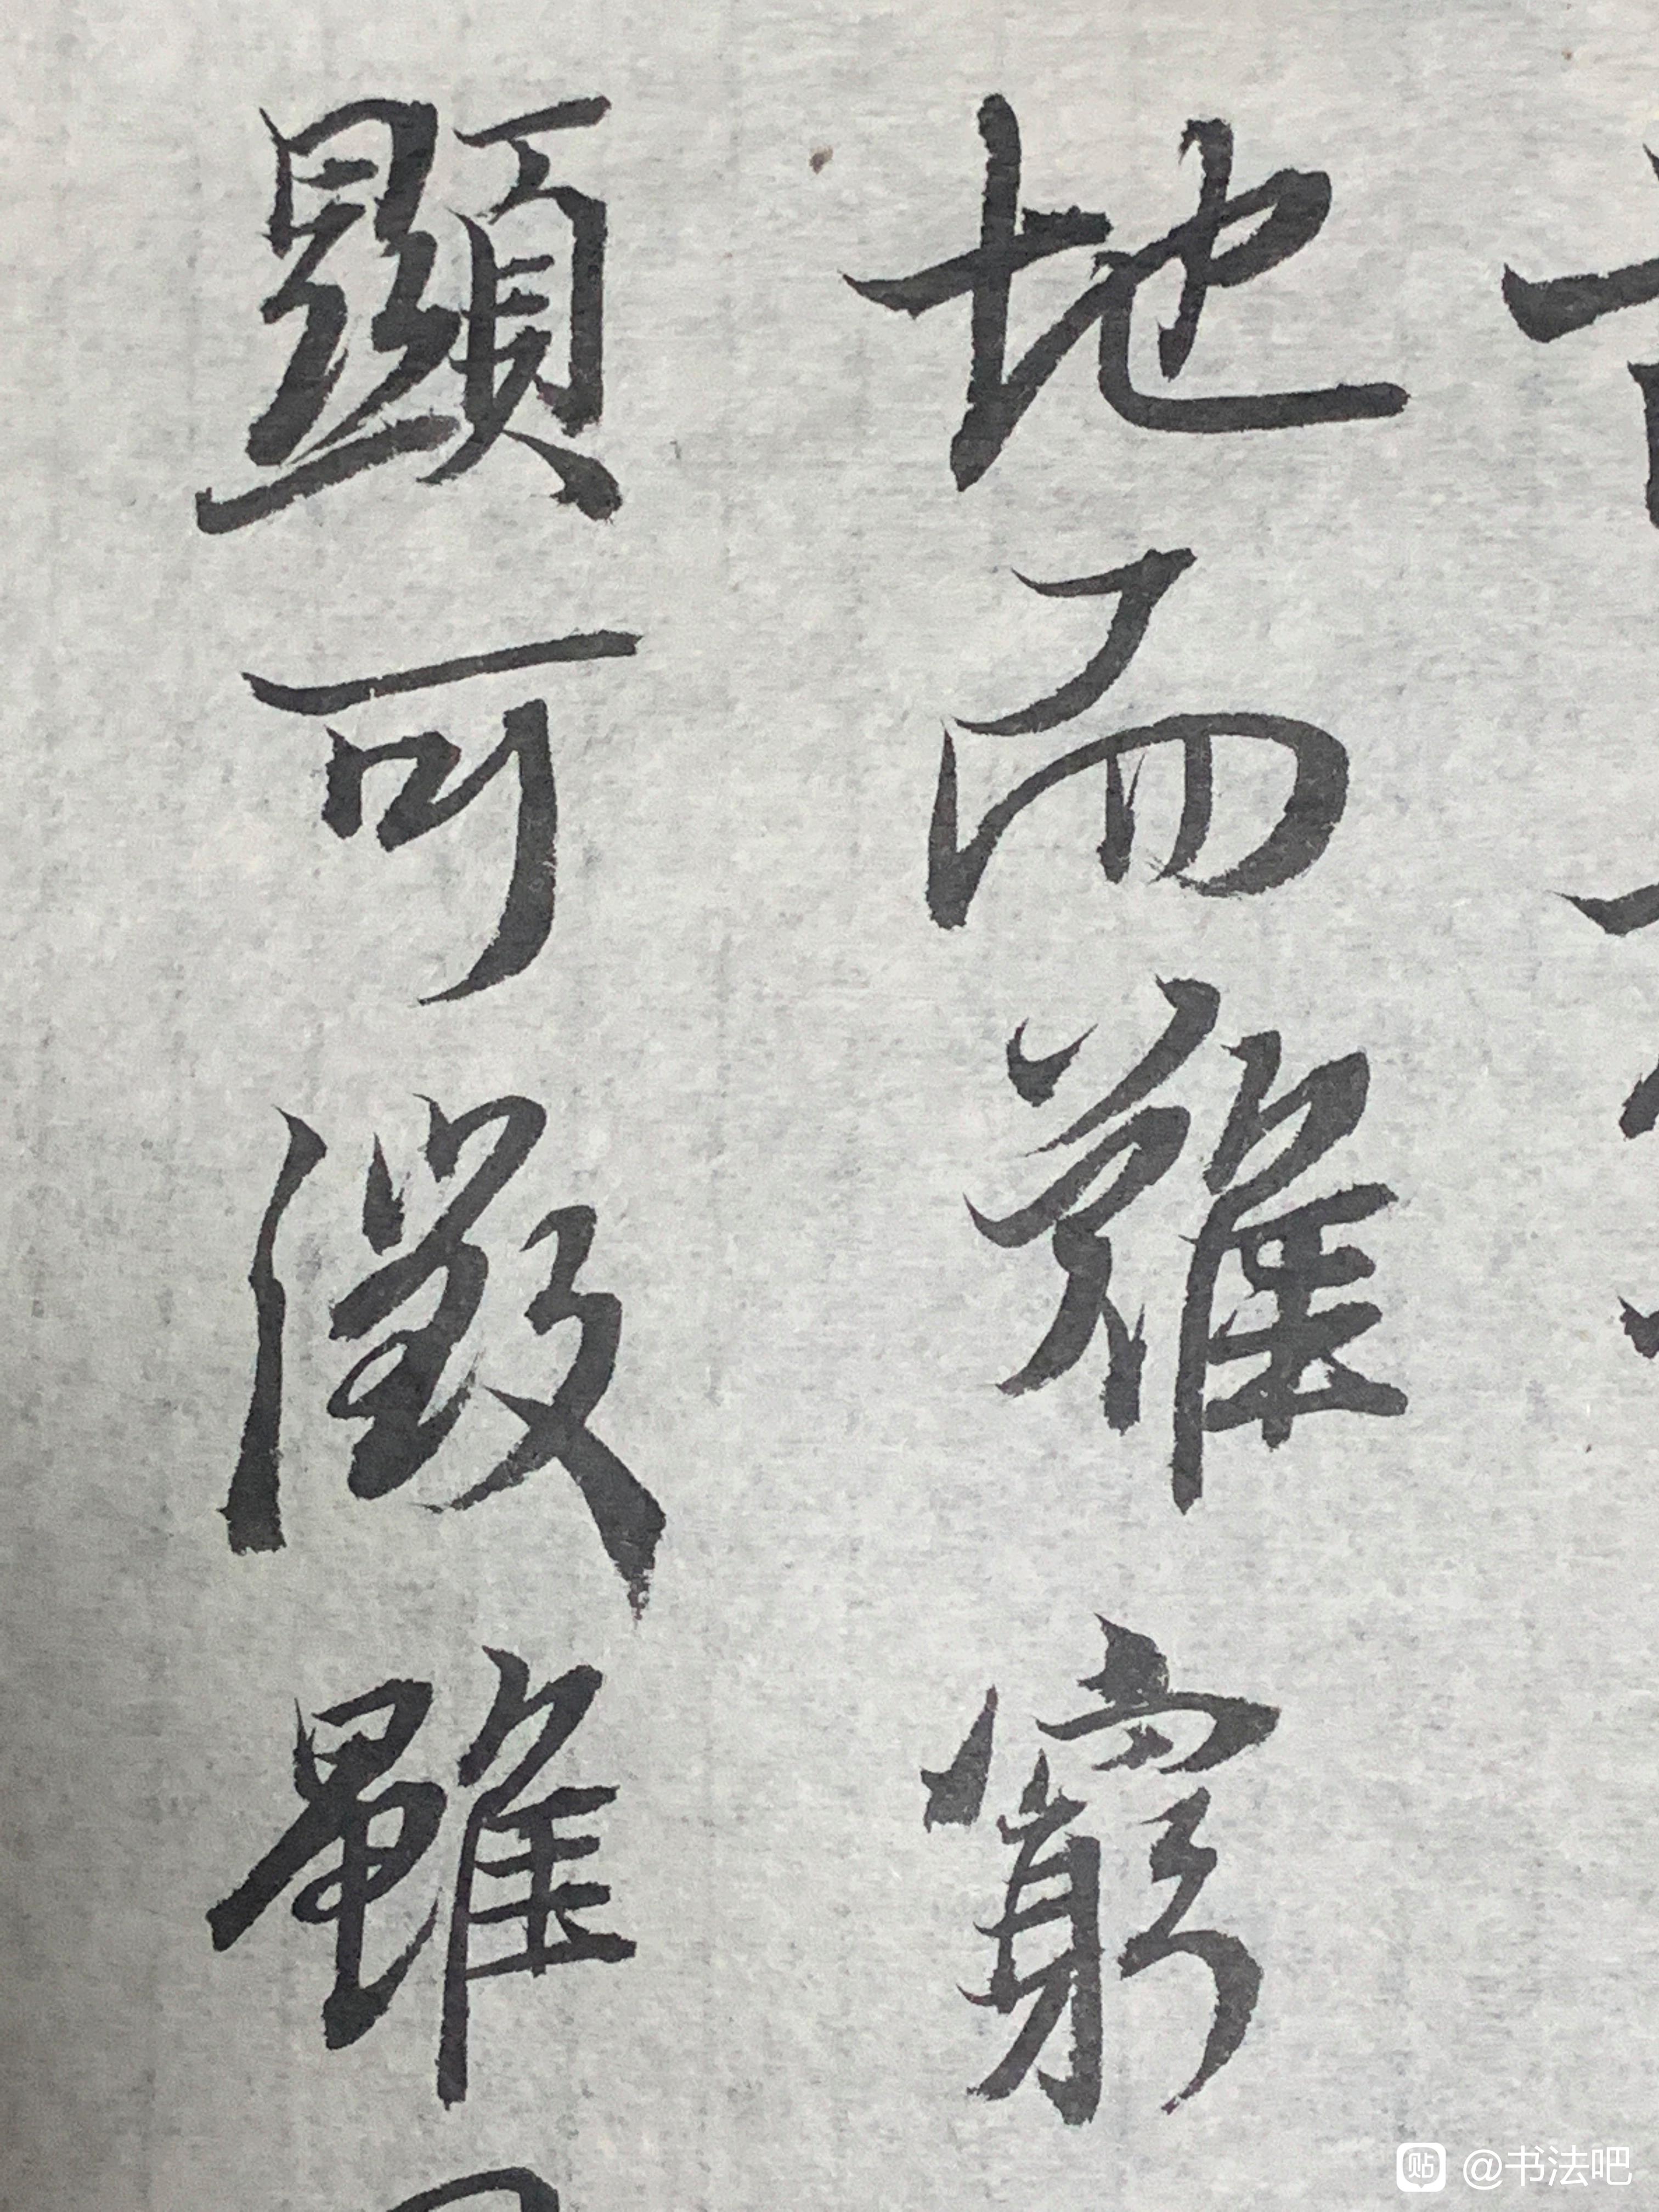 地而難窮
顯可徵雖
@书法吧